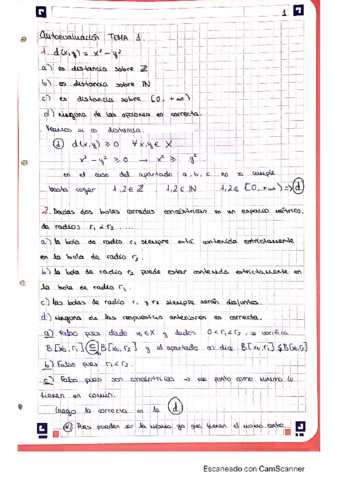 1
Autoevaluación TEMA 1.
1. d(x,y) = x² - y²
a) es distancia sobre ℤ
b) es distancia sobre ℕ
c) es distancia sobre [0, +∞)
d) Ninguna de las opciones es correcta.
Veamos si es distancia.
① d(x,y) ≥ 0 ∀x,y ∈ X
x² - y² ≥ 0 → x² ≥ y²
en el caso del apartado a, b, c no se cumple
basta coger 1,2 ∈ ℤ 1,2 ∈ ℕ 1,2 ∈ [0, +∞) => d
2. Dadas dos bolas cerradas concéntricas en un espacio métrico,
de radios r₁ < r₂ ....
a) la bola de radio r₁ siempre está contenida estrictamente
en la bola de radio r₂.
b) la bola de radio r₂ puede estar contenida estrictamente en
la bola de radio r₁.
c) las bolas de radio r₁ y r₂ siempre serán disjuntas.
d) Ninguna de las respuestas anteriores es correcta.
a) Falso pues dado x₀ ∈ X y dados 0 < r₁ < r₂, se verifica
B[x₀, r₁] ⊆ B[x₀, r₂] y el apartado a) dice B[x₀, r₁] ⊊ B[x₀, r₂]
b) Falso pues r₁ < r₂.
c) Falso pues son concéntricas → ese punto como mínimo lo
tienen en común.
Luego la correcta es la d
Pues pueden ser la misma ya que tienen el mismo centro
Escaneado con CamScanner